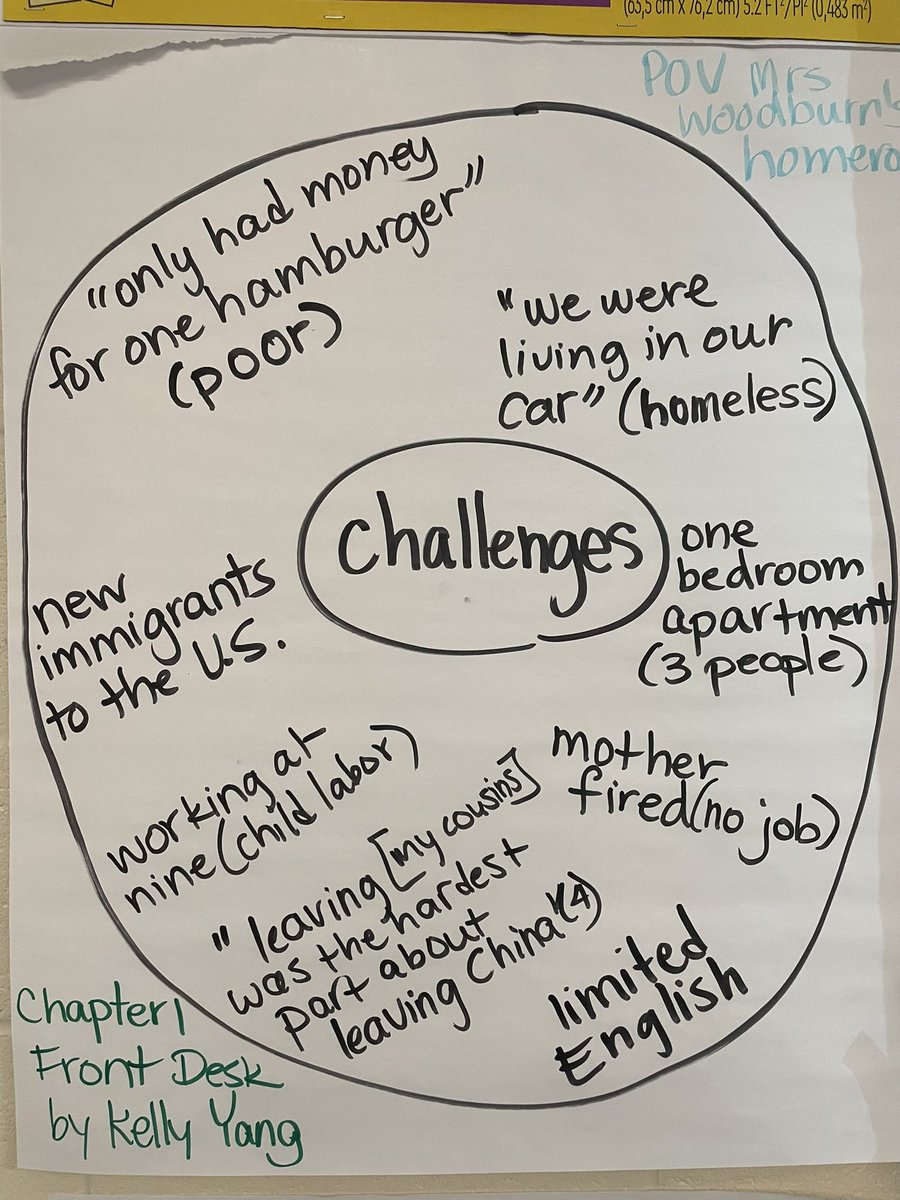 (63,5 cm x 76,2 cm) 5.2 FT²/PI² (0,483 m²)
POV Mrs
Woodburn's
"only had money
for one hamburger"
(poor)
"we were
living in our
car" (homeless)
Challenges
one
bedroom
apartment
(3 people)
new
immigrants
to the U.S.
working at
nine (child labor)
mother
fired (no job)
"leaving [my cousins]
was the hardest
part about
leaving China" (4)
limited
English
Chapter 1
Front Desk
by Kelly Yang